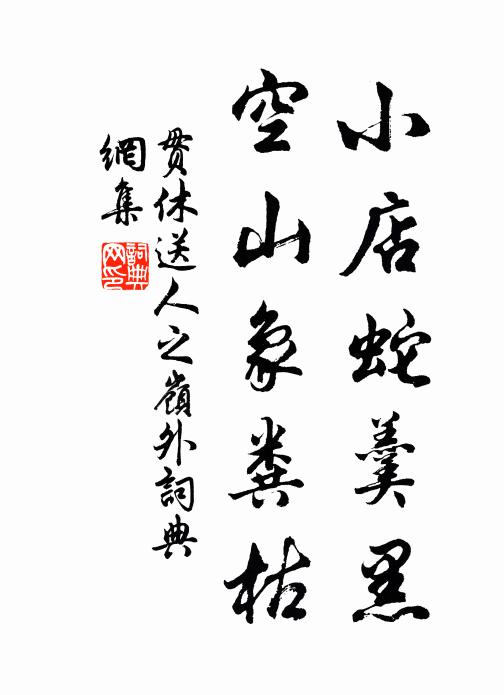 小店蛇羹黑
空山象粪枯
贯休送人之嶺外詞典
網集
詞典
网印